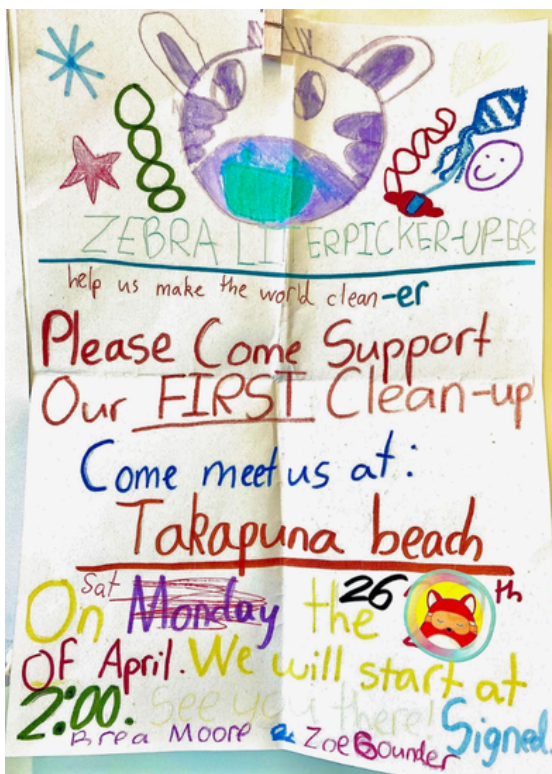 ZEBRA LITTERPICKER-UP-ERS
help us make the world clean-er
Please Come Support
Our FIRST Clean-up
Come meet us at:
Takapuna beach
Sat
On Monday the 26th
OF April. We will start at
2:00. See you there! Signed.
Brea Moore & Zoe Gounder